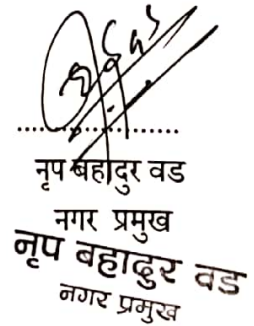 नृप बहादुर वड
नगर प्रमुख
नृप बहादुर वड
नगर प्रमुख